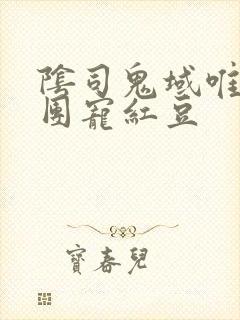 陰司鬼域唯
團寵紅豆
寶春兒